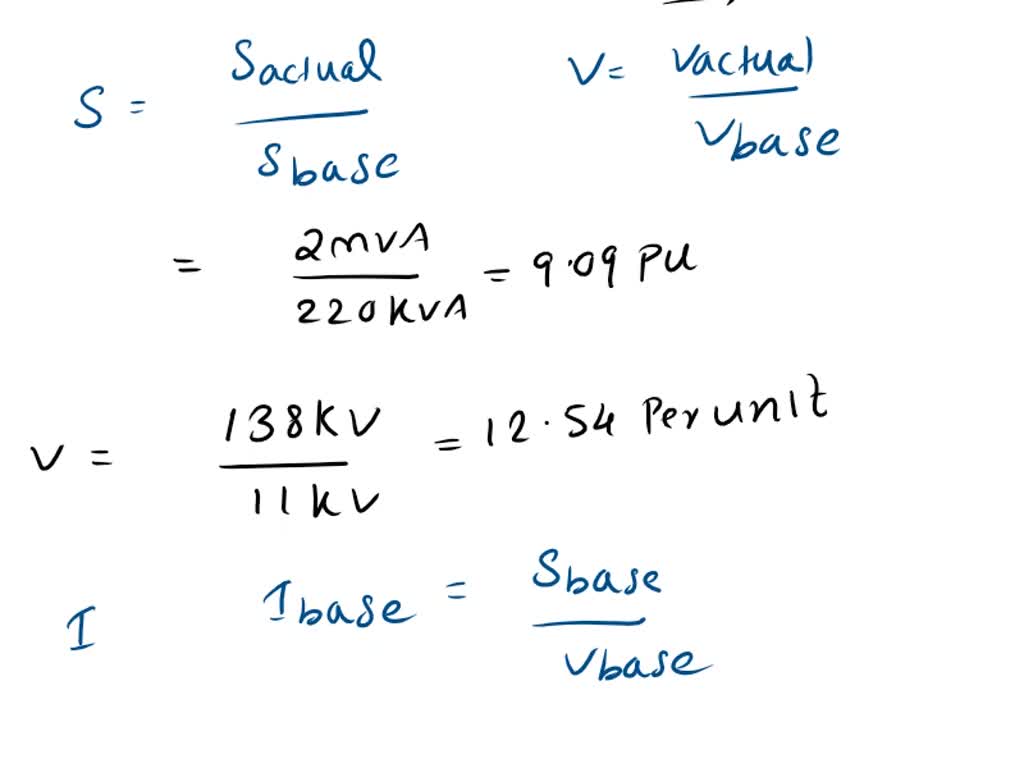 S = Sactual / Sbase V = Vactual / Vbase
= 2mVA / 220KVA = 9.09 PU
V = 138KV / 11KV = 12.54 Per unit
I Ibase = Sbase / Vbase